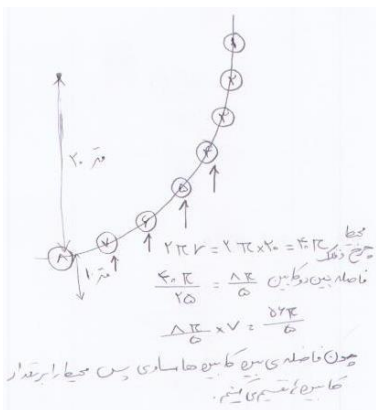 ۱
۲
۳
۴
۵
۶
۷
۸
۲۰ متر
۱ متر
محیط چرخ و فلک ۲πr = ۲π×۲۰ = ۴۰π
فاصله بین دو کابین ۴۰π/۲۵ = ۸π/۵
۸π/۵ × ۷ = ۵۶π/۵
چون فاصله ی بین کابین ها مساوی پس محیط را بر تعداد
کابین ها تقسیم می کنیم.